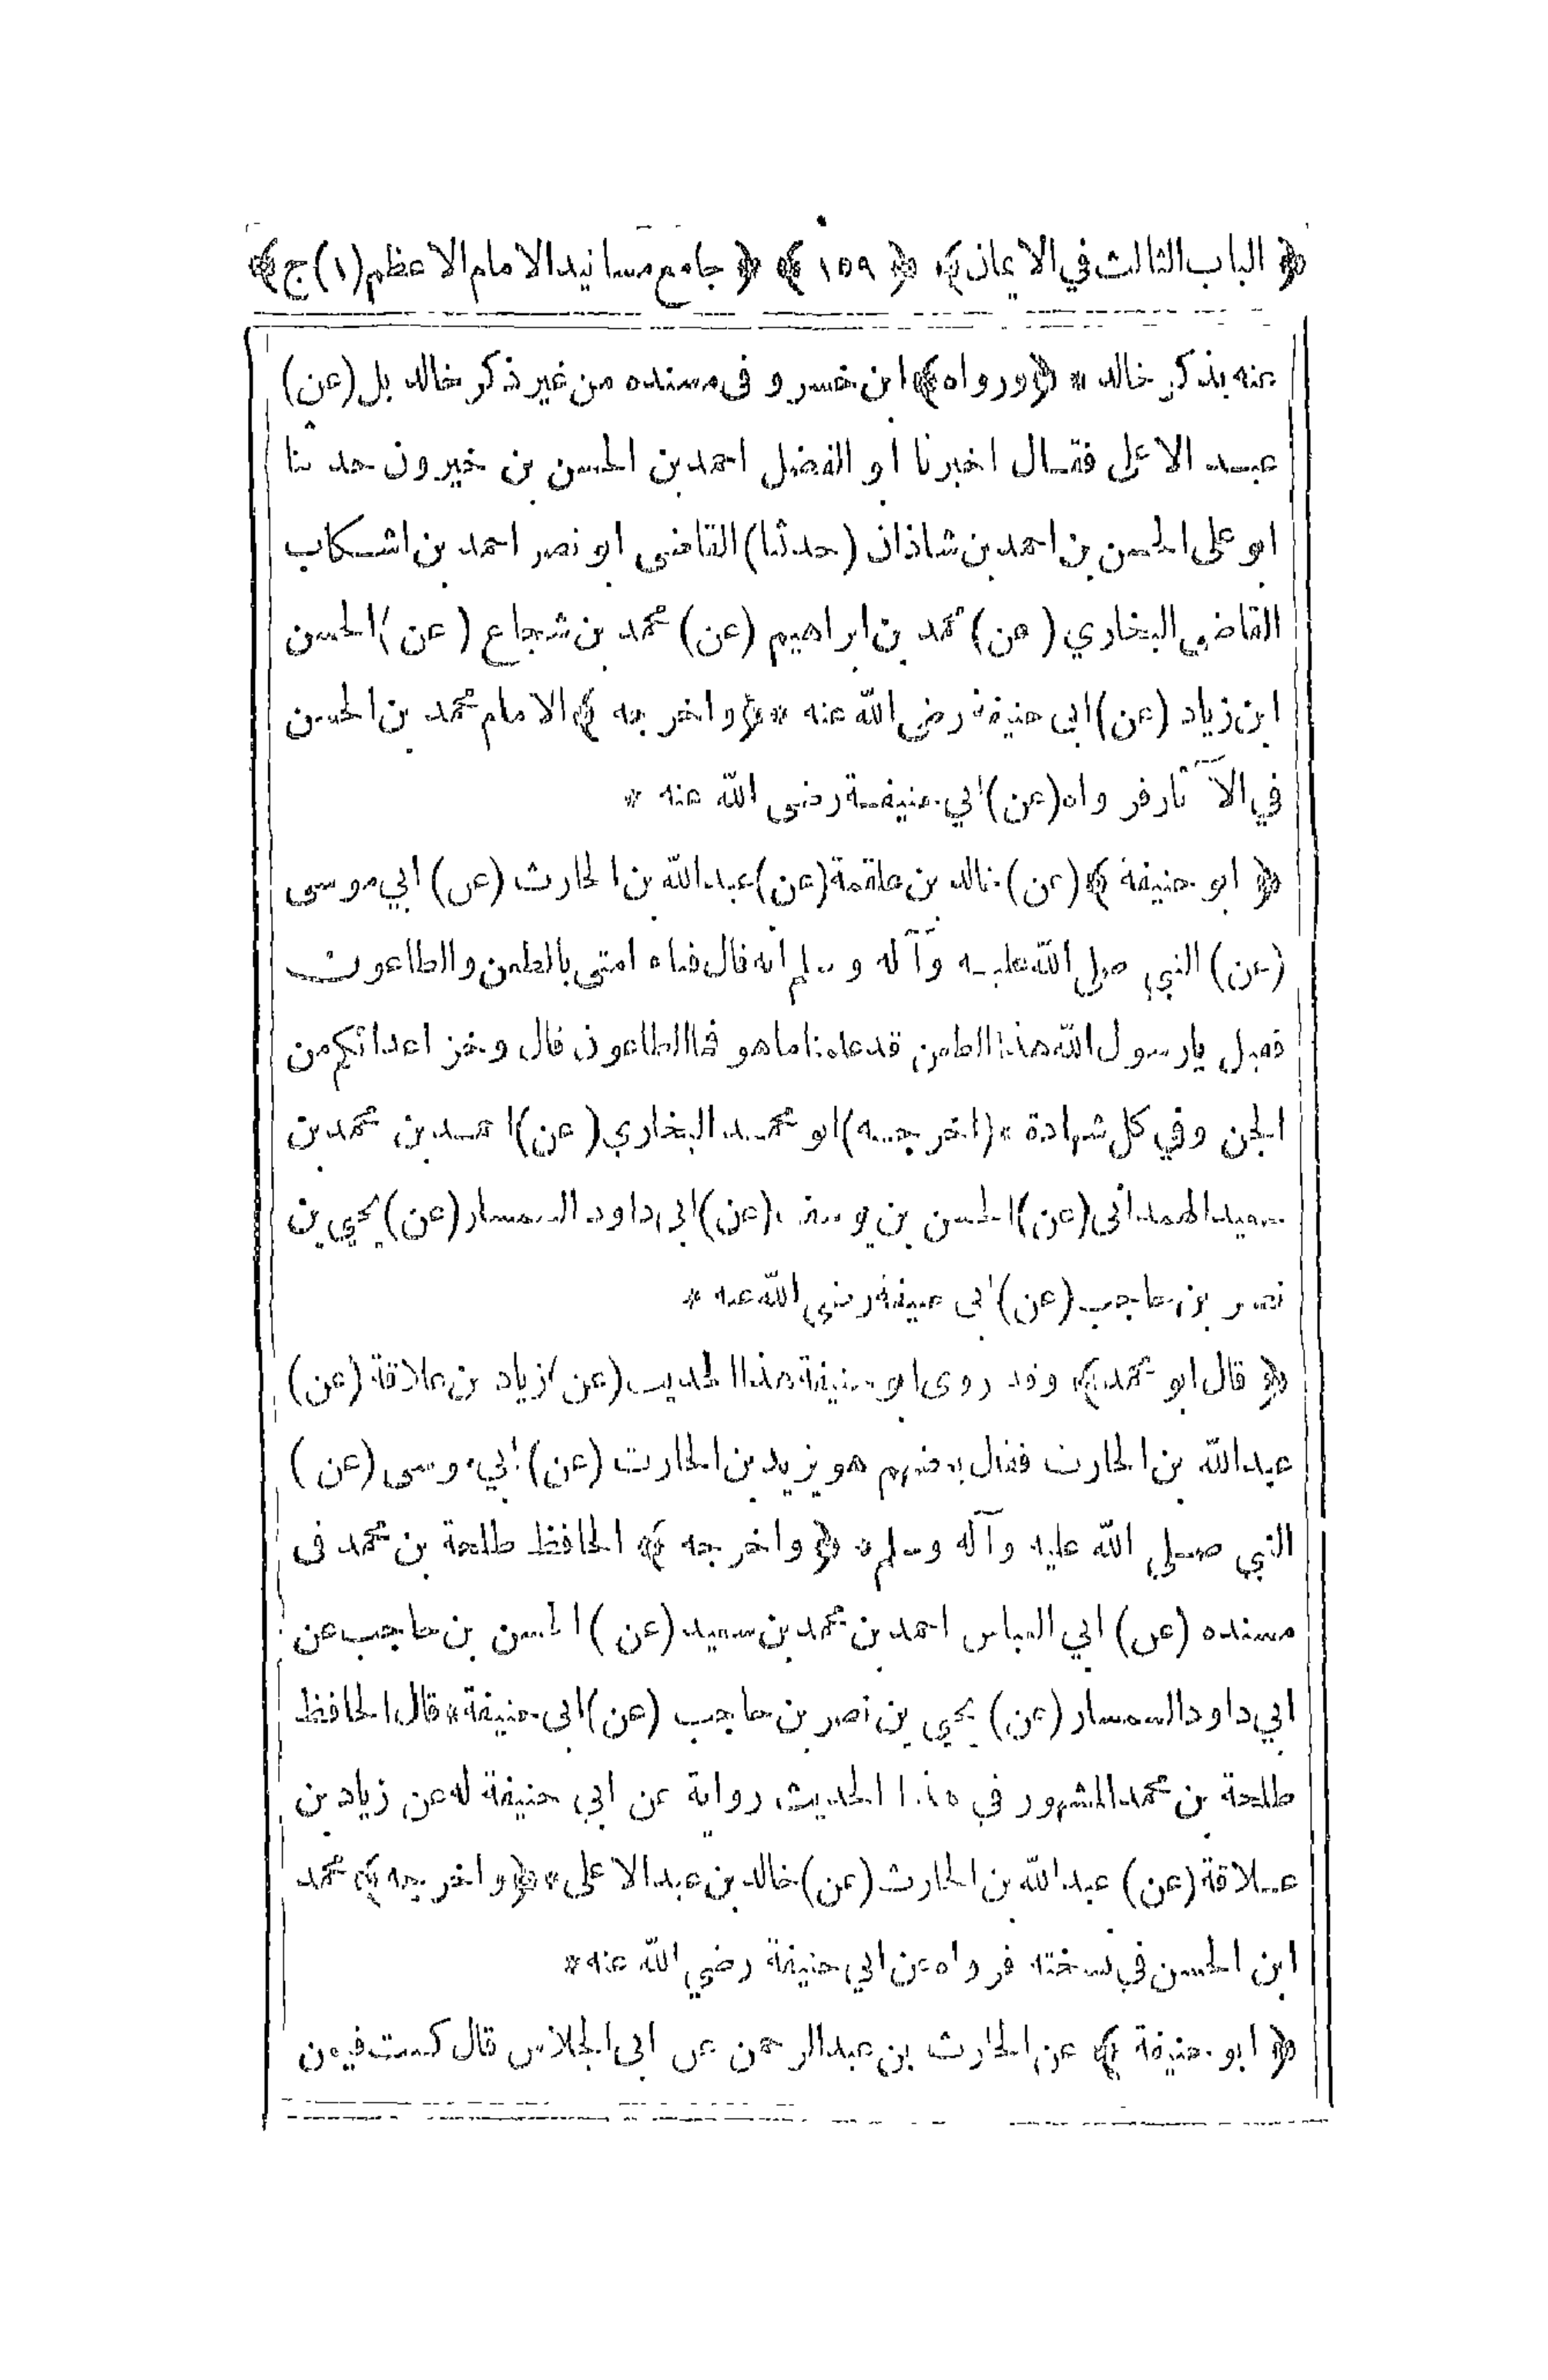 ﴿ الباب الثالث في الايمان ﴾ ﴿ ١٥٩ ﴾ ﴿ جامع مسانيد الامام الاعظم (١) ج ﴾
عنه بذكر خالد * ﴿ ورواه ﴾ ابن خسرو فى مسنده من غير ذكر خالد بل (عن)
عبد الاعلى فقال اخبرنا ابو الفضل احمد بن الحسن بن خيرون حدثنا
ابو على الحسن بن احمد بن شاذان (حدثنا) القاضى ابو نصر احمد بن اشكاب
القاضي البخاري (عن) محمد بن ابراهيم (عن) محمد بن شجاع (عن) الحسن
ابن زياد (عن) ابى حنيفة رضى الله عنه * ﴿ واخرجه ﴾ الامام محمد بن الحسن
في الآثار فرواه (عن) ابي حنيفة رضى الله عنه *
﴿ ابو حنيفة ﴾ (عن) خالد بن علقمة (عن) عبد الله بن الحارث (عن) ابي موسى
(عن) النبي صلى الله عليه وآله وسلم انه قال فناء امتى بالطعن والطاعون
فقيل يارسول الله هذا الطعن قد علمنا ما هو فما الطاعون قال وخز اعدائكم من
الجن وفي كل شهادة * (اخرجه) ابو محمد البخاري (عن) احمد بن محمد بن
سعيد الهمدانى (عن) الحسن بن يوسف (عن) ابى داود السمسار (عن) يحيي بن
نصر بن حاجب (عن) ابى حنيفة رضى الله عنه *
﴿ قال ابو محمد ﴾ وقد روى ابو حنيفة هذا الحديث (عن) زياد بن علاقة (عن)
عبد الله بن الحارث فقال بعضهم هو يزيد بن الحارث (عن) ابي موسى (عن)
النبي صلى الله عليه وآله وسلم * ﴿ واخرجه ﴾ الحافظ طلحة بن محمد فى
مسنده (عن) ابي العباس احمد بن محمد بن سعيد (عن) الحسن بن حاجب عن
ابي داود السمسار (عن) يحيي بن نصر بن حاجب (عن) ابى حنيفة * قال الحافظ
طلحة بن محمد المشهور في هذا الحديث رواية عن ابي حنيفة له عن زياد بن
علاقة (عن) عبد الله بن الحارث (عن) خالد بن عبد الاعلى * ﴿ واخرجه ﴾ محمد
ابن الحسن في نسخته فرواه عن ابي حنيفة رضي الله عنه *
﴿ ابو حنيفة ﴾ عن الحارث بن عبد الرحمن عن ابى الجلاس قال كنت فيمن